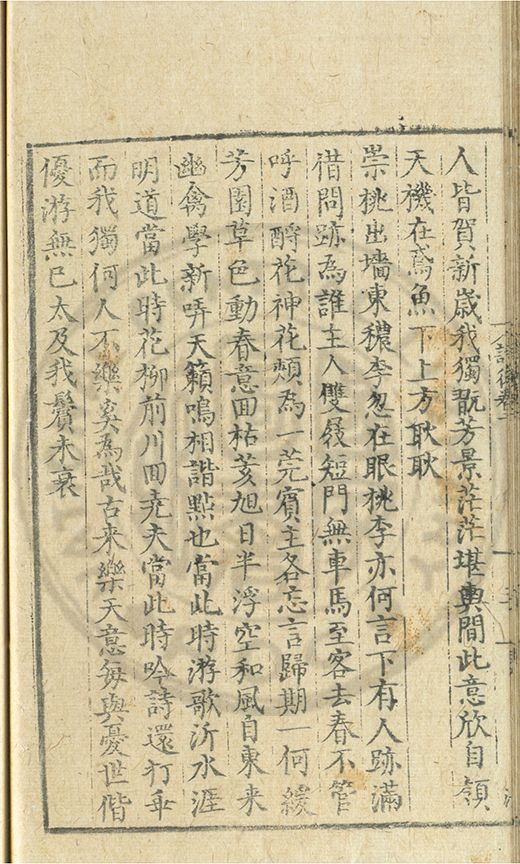 人皆賀新歲我獨翫芳景茫茫堪輿間此意欣自領
天機在鳶魚下上方耿耿
崇桃出墻東穠李忽在眼桃李亦何言下有人跡滿
借問跡為誰主人雙發短門無車馬至客去春不管
呼酒酹花神花頰為一莞賓主各忘言歸期一何緩
芳園草色動春意回枯荄旭日半浮空和風自東来
幽禽學新哢天籟鳴相諧點也當此時游歌沂水涯
明道當此時花柳前川回堯夫當此時吟詩還打乖
而我獨何人不樂奚為哉古来樂天意每與憂世偕
優游無已太及我鬢未衰